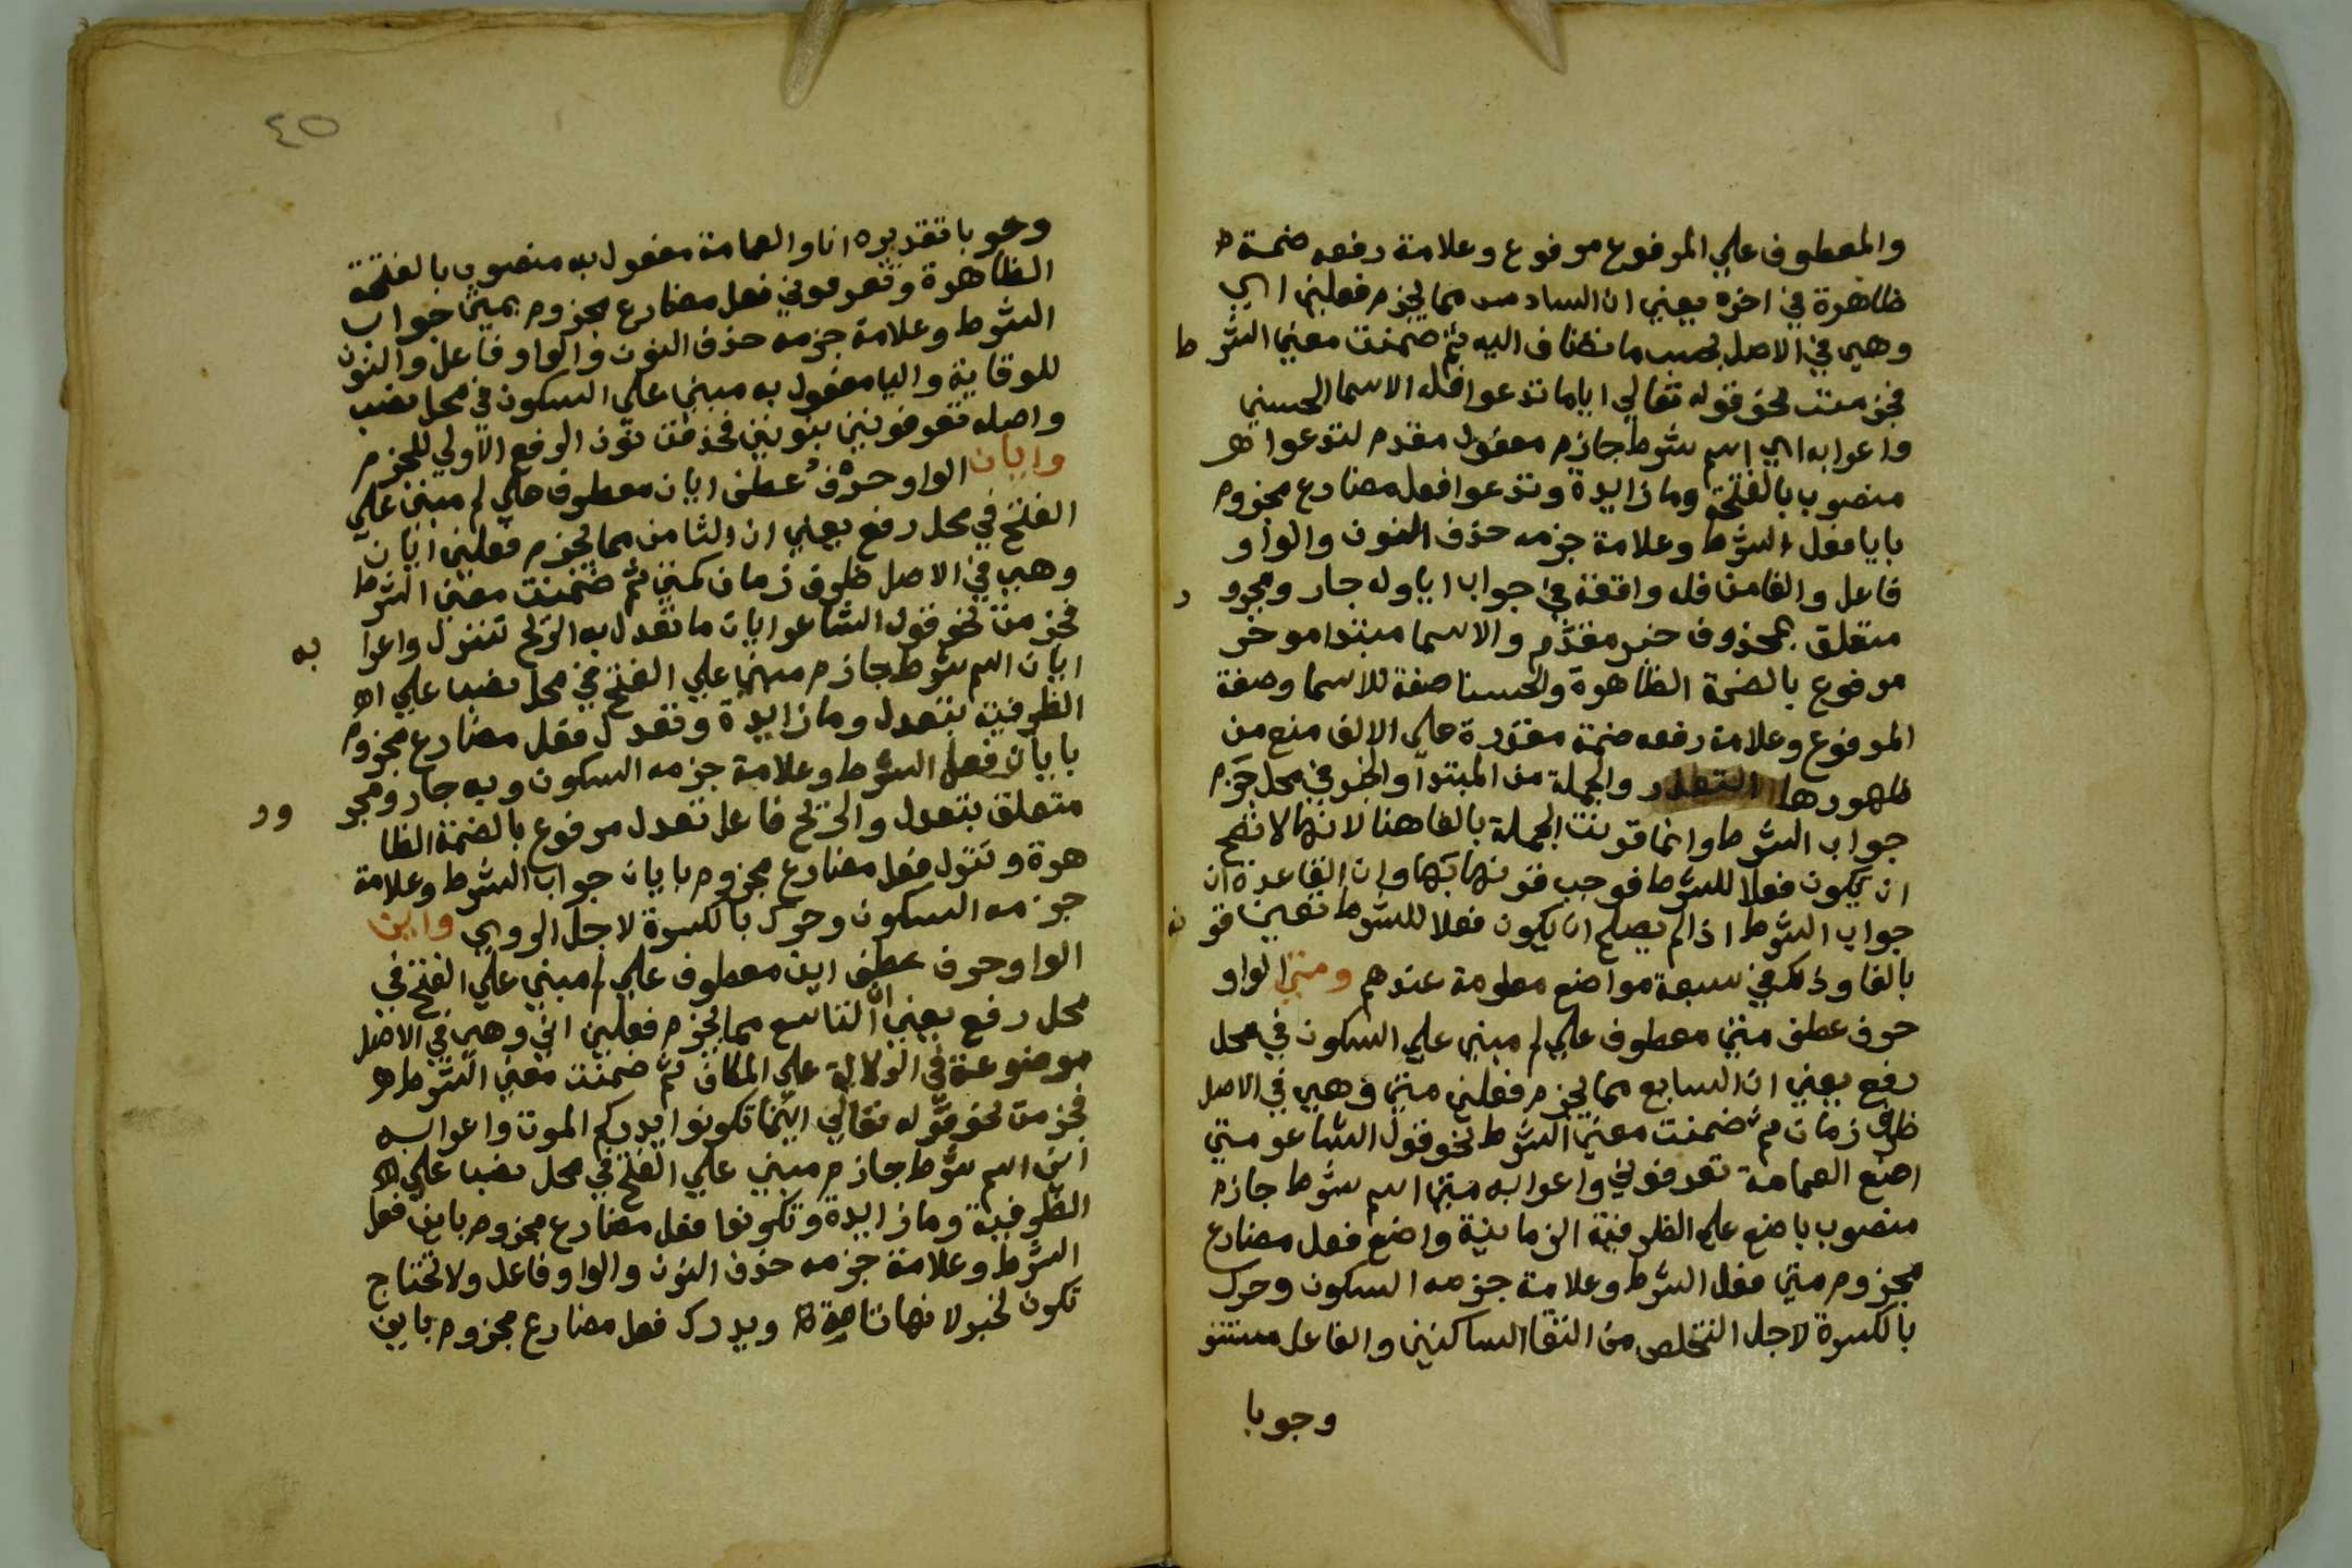 والمعطوف علي المرفوع مرفوع وعلامة رفعه ضمة
ظاهرة في اخره يعني ان السادس مما يجزم فعلين اي
وهي في الاصل بحسب ما تضاف اليه ثم ضمنت معني الشرط
فجزمت نحو قوله تعالي اياما تدعوا فله الاسما الحسني
واعرابه اي اسم شرط جازم مفعول مقدم لتدعوا
منصوب بالفتحة وما زايدة وتدعوا فعل مضارع مجزوم
بايا فعل الشرط وعلامة جزمه حذف النون والواو
فاعل والفا من فله واقعة في جواب ايا وله جار ومجرور
متعلق بمحذوف خبر مقدم والاسما مبتدا موخر
مرفوع بالضمة الظاهرة والحسنا صفة للاسما وصفة
المرفوع وعلامة رفعه ضمة مقدرة علي الالف منع من
ظهورها التعذر والجملة من المبتدا والخبر في محل جزم
جواب الشرط وانما قرنت الجملة بالفا هنا لانها لا تصح
ان يكون فعلا للشرط فوجب قرنها بها وان القاعدة ان
جواب الشرط اذا لم يصلح ان يكون فعلا للشرط تعين قرنه
بالفا وذلك في سبعة مواضع معلومة عندهم ومتي الواو
حرف عطف متي معطوف علي لم مبني علي السكون في محل
رفع يعني ان السابع مما يجزم فعلين متي وهي في الاصل
ظرف زمان ثم ضمنت معني الشرط نحو قول الشاعر متي
اضع العمامة تعرفوني واعرابه متي اسم شرط جازم
منصوب باضع علي الظرفية الزمانية واضع فعل مضارع
مجزوم متي فعل الشرط وعلامة جزمه السكون وحرك
بالكسرة لاجل التخلص من التقا الساكنين والفاعل مستتر
وجوبا
٤٥
وجوبا تقديره انا والعمامة مفعول به منصوب بالفتحة
الظاهرة وتعرفوني فعل مضارع مجزوم بمتي جواب
الشرط وعلامة جزمه حذف النون والواو فاعل والنون
للوقاية واليا مفعول به مبني علي السكون في محل نصب
واصله تعرفونني بنونين فحذفت نون الرفع الاولي للجزم
وايان الواو حرف عطف ايان معطوف علي لم مبني علي
الفتح في محل رفع يعني ان الثامن مما يجزم فعلين ايان
وهي في الاصل ظرف زمان كمتي ثم ضمنت معني الشرط
فجزمت نحو قول الشاعر ايان ما تعدل به الريح تنزل واعرابه
ايان اسم شرط جازم مبني علي الفتح في محل نصب علي
الظرفية بتعدل وما زايدة وتعدل فعل مضارع مجزوم
بايان فعل الشرط وعلامة جزمه السكون وبه جار ومجرور
متعلق بتعدل والريح فاعل تعدل مرفوع بالضمة الظا
هرة وتنزل فعل مضارع مجزوم بايان جواب الشرط وعلامة
جزمه السكون وحرك بالكسرة لاجل الروي واين
الواو حرف عطف اين معطوف علي لم مبني علي الفتح في
محل رفع يعني ان التاسع مما يجزم فعلين اني وهي في الاصل
موضوعة في الدلالة علي المكان ثم ضمنت معني الشرط
فجزمت نحو قوله تعالي اينما تكونوا يدرككم الموت واعرابه
اين اسم شرط جازم مبني علي الفتح في محل نصب علي
الظرفية وما زايدة وتكونوا فعل مضارع مجزوم باين فعل
الشرط وعلامة جزمه حذف النون والواو فاعل ولا تحتاج
تكون لخبر لانها تامة ويدرك فعل مضارع مجزوم باين